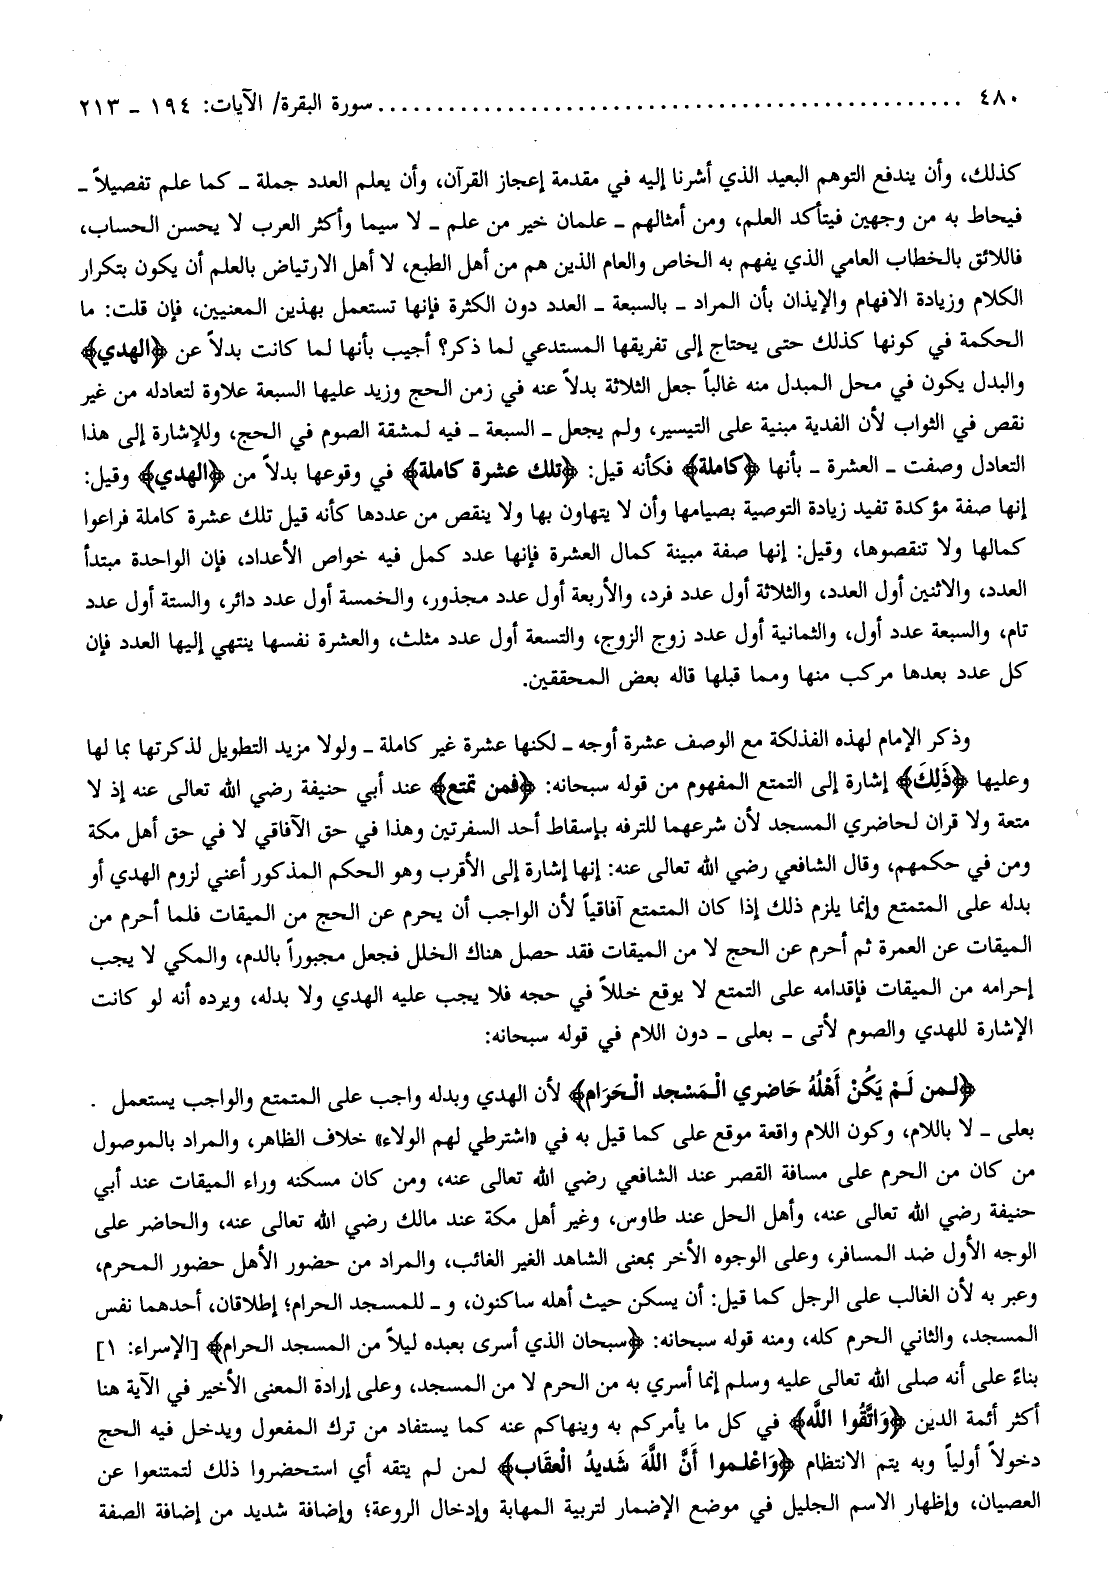 ٤٨٠ ................................................ سورة البقرة/ الآيات: ١٩٤ ـ ٢١٣
كذلك، وأن يندفع التوهم البعيد الذي أشرنا إليه في مقدمة إعجاز القرآن، وأن يعلم العدد جملة ـ كما علم تفصيلاً ـ
فيحاط به من وجهين فيتأكد العلم، ومن أمثالهم ـ علمان خير من علم ـ لا سيما وأكثر العرب لا يحسن الحساب،
فاللائق بالخطاب العامي الذي يفهم به الخاص والعام الذين هم من أهل الطبع، لا أهل الارتياض بالعلم أن يكون بتكرار
الكلام وزيادة الافهام والإيذان بأن المراد ـ بالسبعة ـ العدد دون الكثرة فإنها تستعمل بهذين المعنيين، فإن قلت: ما
الحكمة في كونها كذلك حتى يحتاج إلى تفريقها المستدعي لما ذكر؟ أجيب بأنها لما كانت بدلاً عن ﴿الهدي﴾
والبدل يكون في محل المبدل منه غالباً جعل الثلاثة بدلاً عنه في زمن الحج وزيد عليها السبعة علاوة لتعادله من غير
نقص في الثواب لأن الفدية مبنية على التيسير، ولم يجعل ـ السبعة ـ فيه لمشقة الصوم في الحج، وللإشارة إلى هذا
التعادل وصفت ـ العشرة ـ بأنها ﴿كاملة﴾ فكأنه قيل: ﴿تلك عشرة كاملة﴾ في وقوعها بدلاً من ﴿الهدي﴾ وقيل:
إنها صفة مؤكدة تفيد زيادة التوصية بصيامها وأن لا يتهاون بها ولا ينقص من عددها كأنه قيل تلك عشرة كاملة فراعوا
كمالها ولا تنقصوها، وقيل: إنها صفة مبينة كمال العشرة فإنها عدد كمل فيه خواص الأعداد، فإن الواحدة مبتدأ
العدد، والاثنين أول العدد، والثلاثة أول عدد فرد، والأربعة أول عدد مجذور، والخمسة أول عدد دائر، والستة أول عدد
تام، والسبعة عدد أول، والثمانية أول عدد زوج الزوج، والتسعة أول عدد مثلث، والعشرة نفسها ينتهي إليها العدد فإن
كل عدد بعدها مركب منها ومما قبلها قاله بعض المحققين.
وذكر الإمام لهذه الفذلكة مع الوصف عشرة أوجه ـ لكنها عشرة غير كاملة ـ ولولا مزيد التطويل لذكرتها بما لها
وعليها ﴿ذَلِكَ﴾ إشارة إلى التمتع المفهوم من قوله سبحانه: ﴿فمن تمتع﴾ عند أبي حنيفة رضي الله تعالى عنه إذ لا
متعة ولا قران لحاضري المسجد لأن شرعهما للترفه بإسقاط أحد السفرتين وهذا في حق الآفاقي لا في حق أهل مكة
ومن في حكمهم، وقال الشافعي رضي الله تعالى عنه: إنها إشارة إلى الأقرب وهو الحكم المذكور أعني لزوم الهدي أو
بدله على المتمتع وإنما يلزم ذلك إذا كان المتمتع آفاقياً لأن الواجب أن يحرم عن الحج من الميقات فلما أحرم من
الميقات عن العمرة ثم أحرم عن الحج لا من الميقات فقد حصل هناك الخلل فجعل مجبوراً بالدم، والمكي لا يجب
إحرامه من الميقات فإقدامه على التمتع لا يوقع خللاً في حجه فلا يجب عليه الهدي ولا بدله، ويرده أنه لو كانت
الإشارة للهدي والصوم لأتى ـ بعلى ـ دون اللام في قوله سبحانه:
﴿لمن لَمْ يَكُنْ أَهْلُهُ حَاضري الْمَسْجد الْحَرَام﴾ لأن الهدي وبدله واجب على المتمتع والواجب يستعمل .
بعلى ـ لا باللام، وكون اللام واقعة موقع على كما قيل به في «اشترطي لهم الولاء» خلاف الظاهر، والمراد بالموصول
من كان من الحرم على مسافة القصر عند الشافعي رضي الله تعالى عنه، ومن كان مسكنه وراء الميقات عند أبي
حنيفة رضي الله تعالى عنه، وأهل الحل عند طاوس، وغير أهل مكة عند مالك رضي الله تعالى عنه، والحاضر على
الوجه الأول ضد المسافر، وعلى الوجوه الأخر بمعنى الشاهد الغير الغائب، والمراد من حضور الأهل حضور المحرم،
وعبر به لأن الغالب على الرجل كما قيل: أن يسكن حيث أهله ساكنون، و ـ للمسجد الحرام؛ إطلاقان، أحدهما نفس
المسجد، والثاني الحرم كله، ومنه قوله سبحانه: ﴿سبحان الذي أسرى بعبده ليلاً من المسجد الحرام﴾ [الإسراء: ١]
بناءً على أنه صلى الله تعالى عليه وسلم إنما أسري به من الحرم لا من المسجد، وعلى إرادة المعنى الأخير في الآية هنا
أكثر أئمة الدين ﴿وَاتَّقُوا اللَّه﴾ في كل ما يأمركم به وينهاكم عنه كما يستفاد من ترك المفعول ويدخل فيه الحج
دخولاً أولياً وبه يتم الانتظام ﴿وَاعْلموا أَنَّ اللَّهَ شَديدُ الْعقَاب﴾ لمن لم يتقه أي استحضروا ذلك لتمتنعوا عن
العصيان، وإظهار الاسم الجليل في موضع الإضمار لتربية المهابة وإدخال الروعة؛ وإضافة شديد من إضافة الصفة